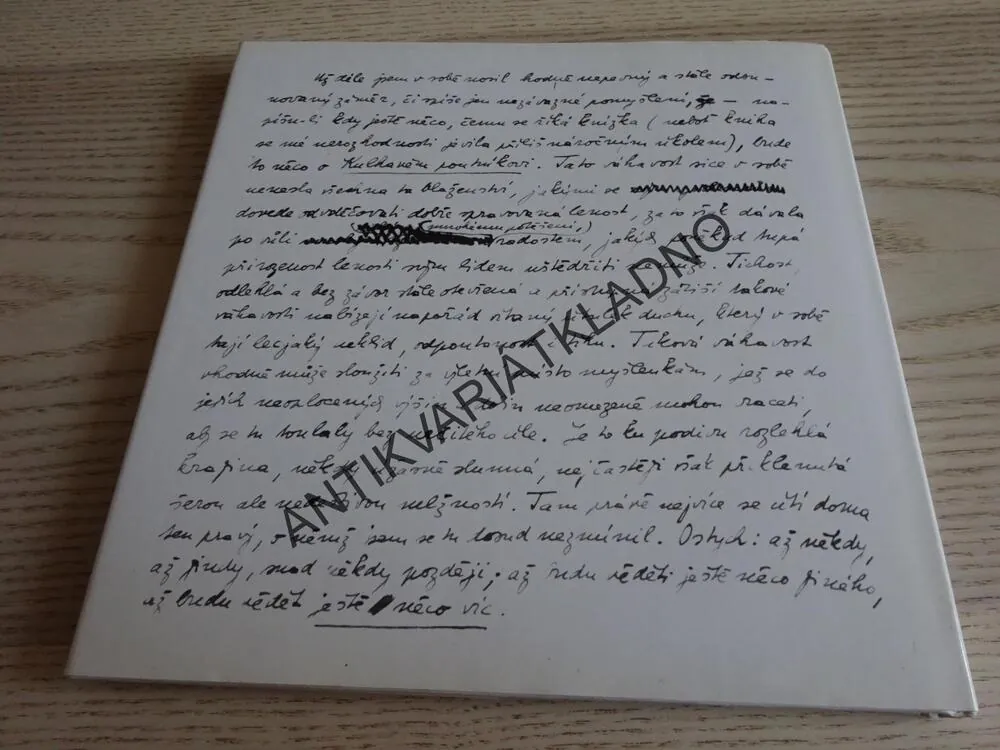 Už déle jsem v sobě nosil hodně nepevný a stále odsu-
novaný záměr, či spíše jen nezávazné pomyšlení, že — na-
píšu-li kdy ještě něco, čemu se říká knížka (neboť kniha
se mé nerozhodnosti jevila příliš náročným úkolem), bude
to něco o Kulhavém poutníkovi. Tato váhavost sice v sobě
nenesla všechna ta blaženství, jakými se
dovede odvděčovati dobře spravovaná lenost, za to však dávala
(mnohému potěšení,)
po vůli radostem, jakých tupá
přirozenost lenosti svým lidem uštědřiti nemůže. Tichost,
odlehlá a bez závor stále otevřená a zátiší takové
váhavosti nabízejí napořád vítaný útulek duchu, který v sobě
tají lecjaký neklid, odpoutanost i tíhu. Taková váhavost
vhodně může sloužiti za místo myšlenkám, jež se do
jejich neomezeně mohou vraceti,
aby se tu toulaly bez určitého cíle. Je to ku podivu rozlehlá
krajina, někdy úžasně slunná, nejčastěji však překlenutá
šerou ale něžností. Tam právě nejvíce se cítí doma
ten pravý, o němž jsem se tu dosud nezmínil. Ostych: až někdy,
až jindy, snad někdy později; až budu věděti ještě něco jiného,
až budu vědět ještě něco víc.
ANTIKVARIÁTKLADNO